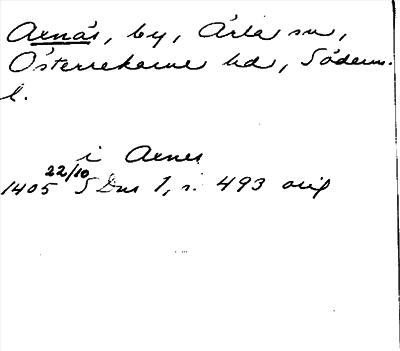 Arnäs, by, Ärla sn,
Österrekarne hd, Söderm.
l.
i Arnes
1405 22/10 SDns 1, s. 493 orig